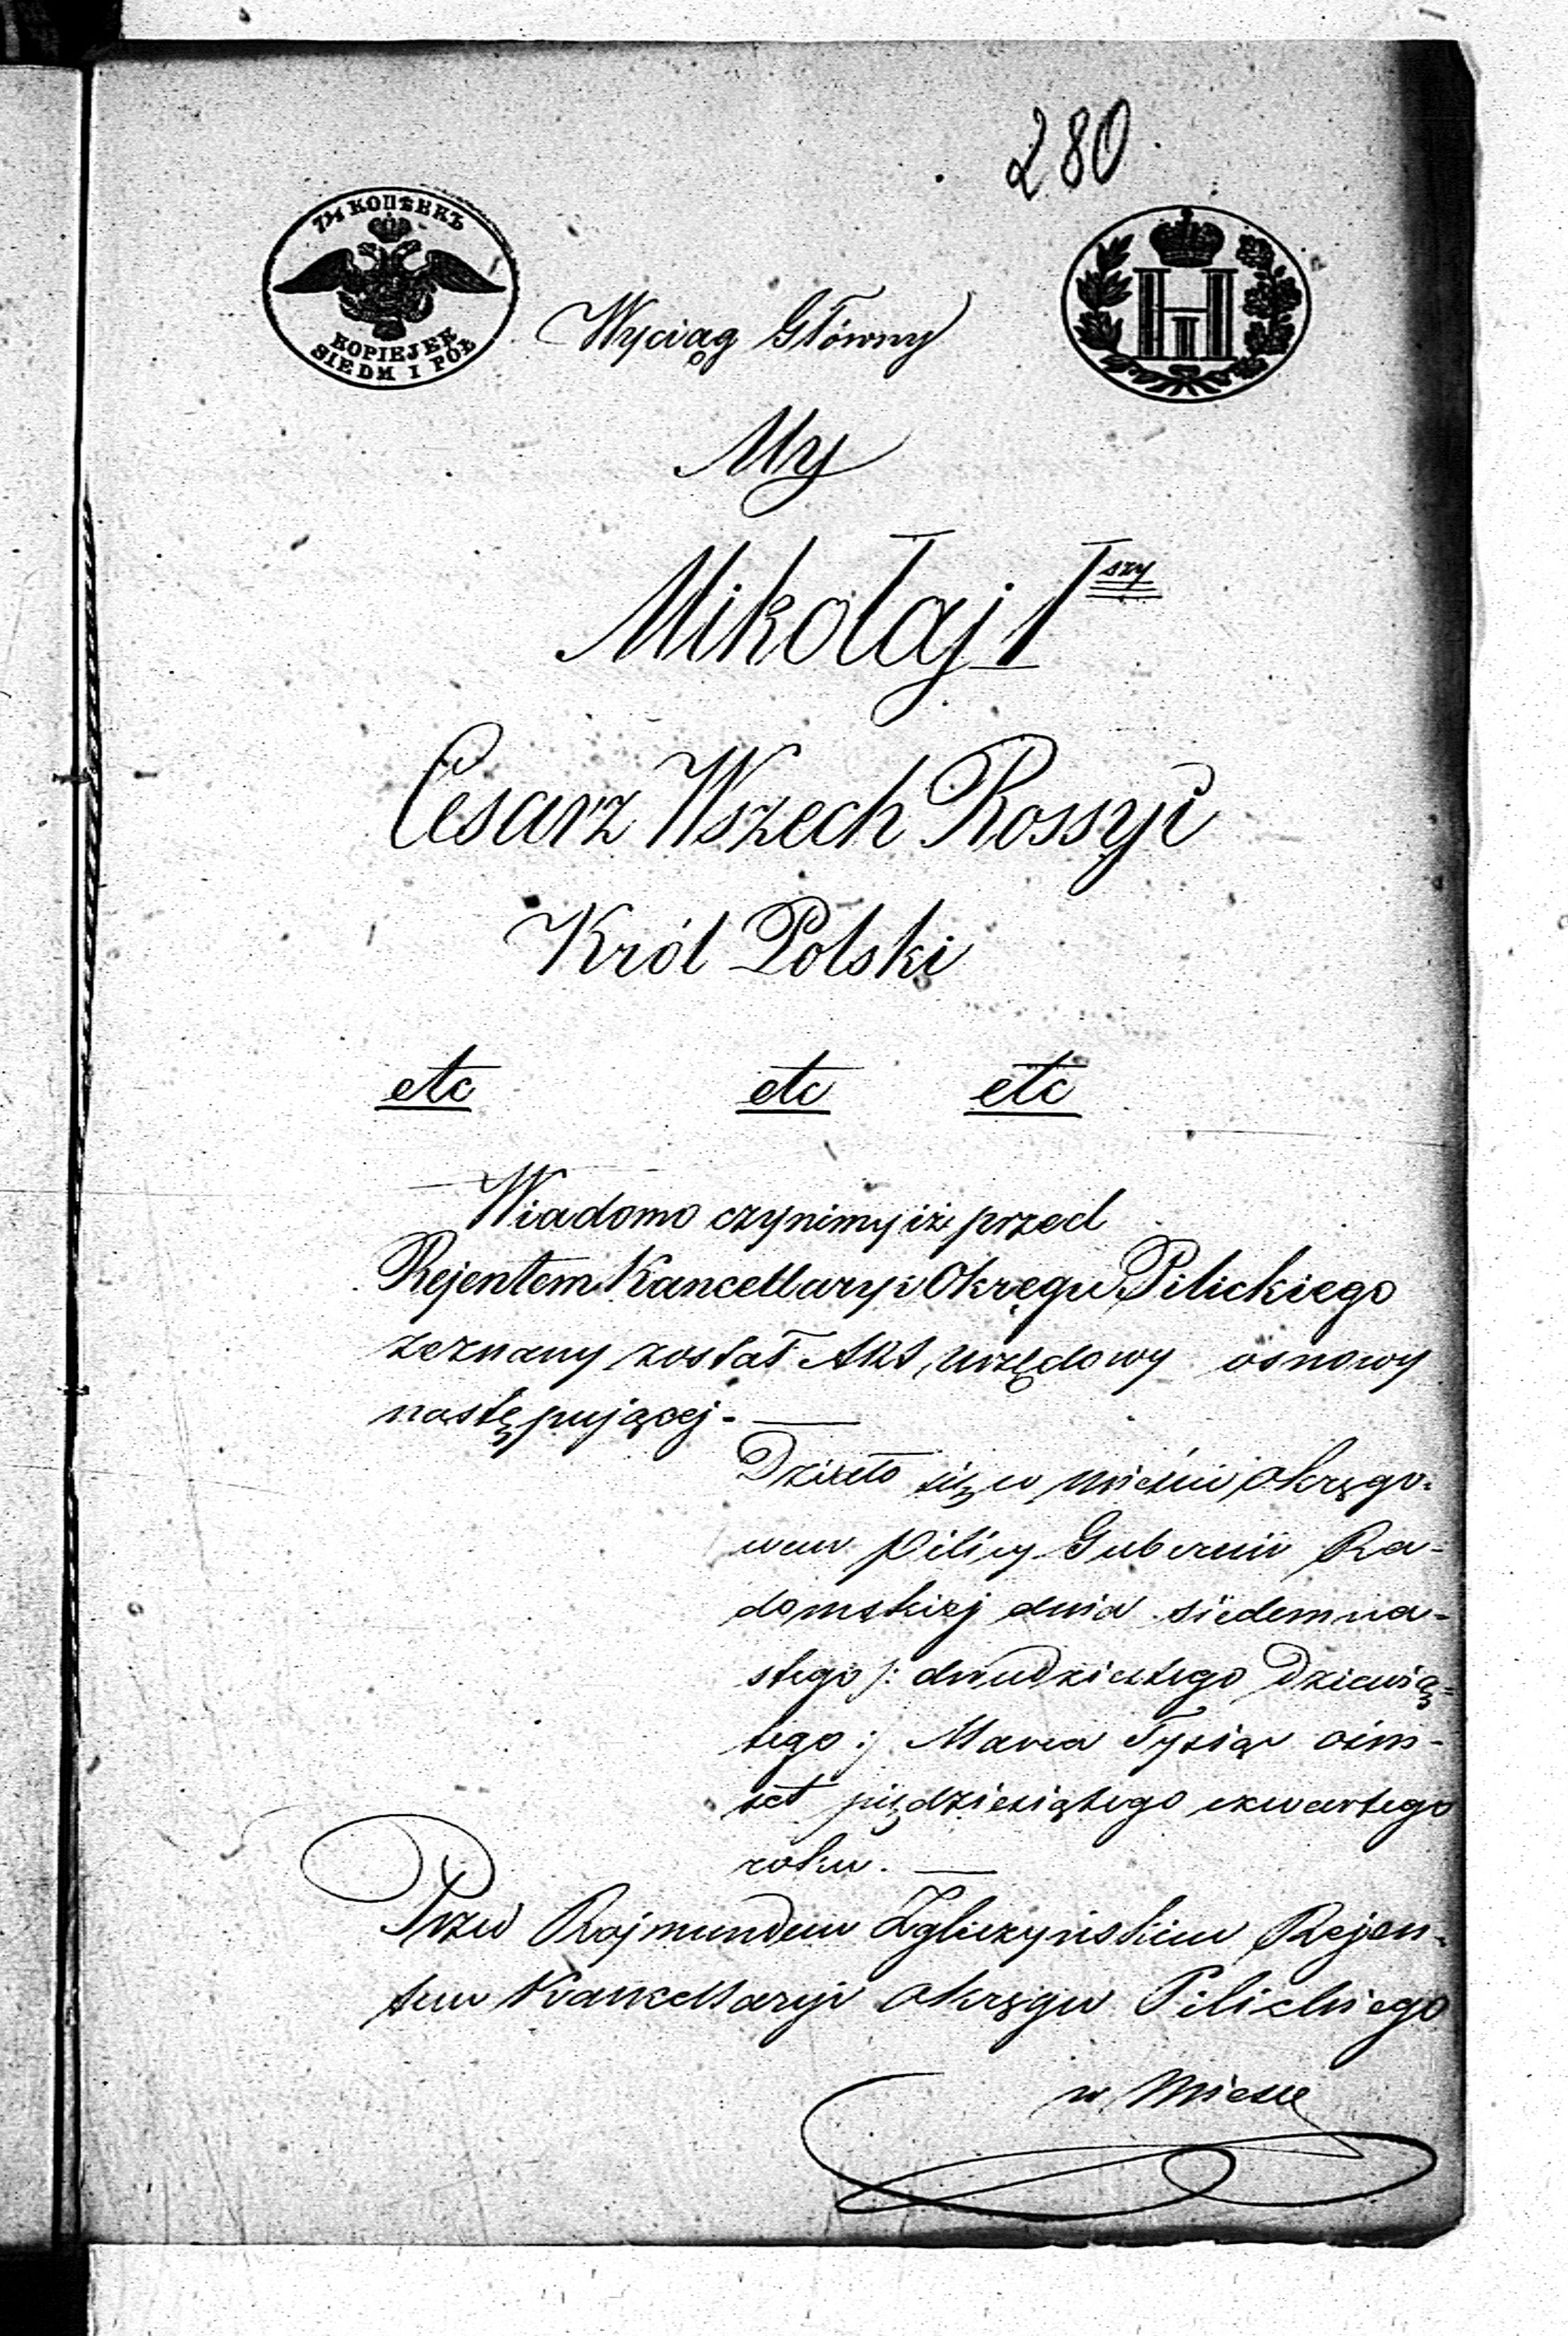 280.
7½ КОПѢЕКЪ
KOPIEJEK
SIEDM I PÓŁ
Wyciąg Główny
H
I
My
Mikołaj 1szy
Cesarz Wszech Rossyi
Król Polski
etc etc etc
Wiadomo czynimy iż przed
Rejentem Kancellaryi Okręgu Pilickiego
zeznany został Akt urzędowy osnowy
następującej. —
Działo się w mieście okręgo-
wem Pilicy Gubernii Ra-
domskiej dnia siedemna-
stego /: dwudziestego Dziewią-
tego :/ Marca Tysiąc ośm-
set piędziesiątego czwartego
roku. —
Przed Rajmundem Zgliczyńskim Rejen-
tem Kancellaryi Okręgu Pilickiego
w Mieście